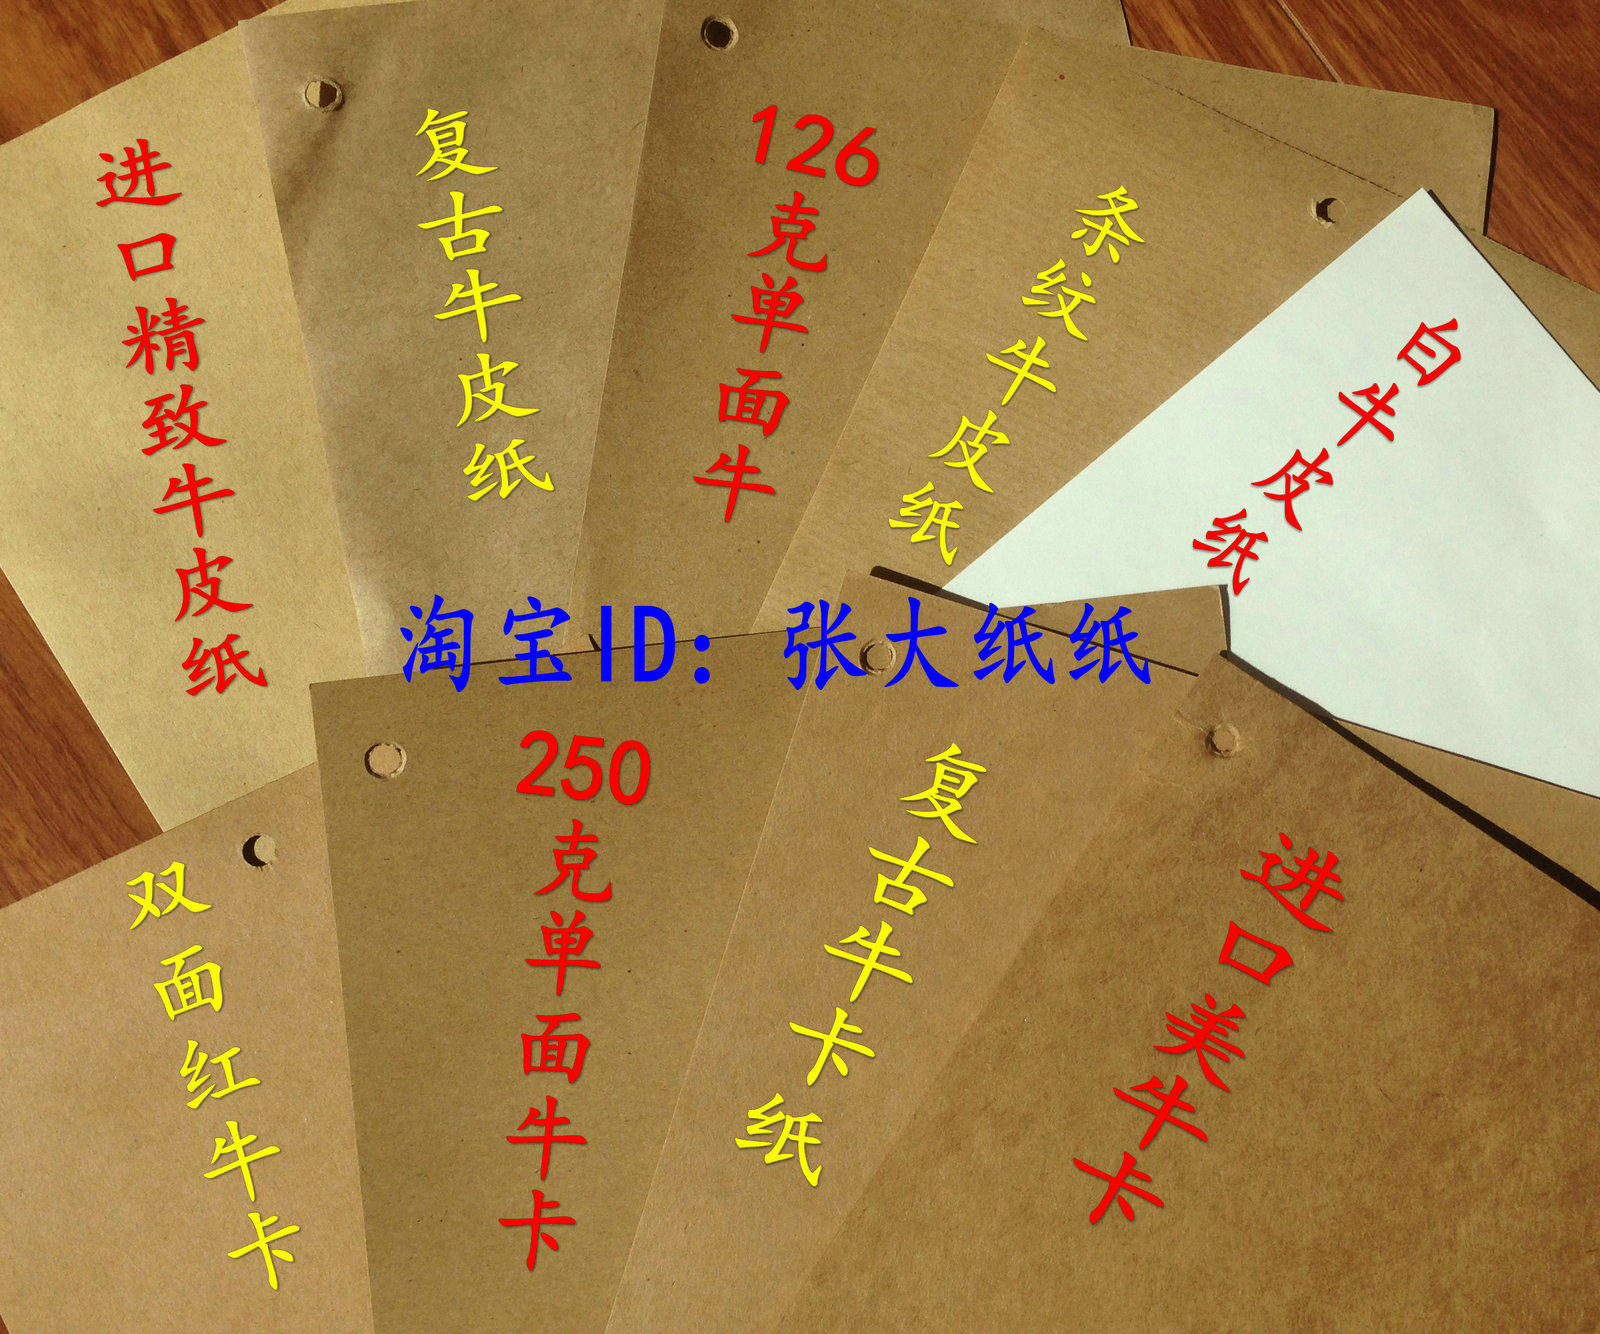 进口精致牛皮纸
复古牛皮纸
126克单面牛
条纹牛皮纸
白牛皮纸
淘宝ID：张大纸纸
双面红牛卡
250克单面牛卡
复古牛卡纸
进口美牛卡